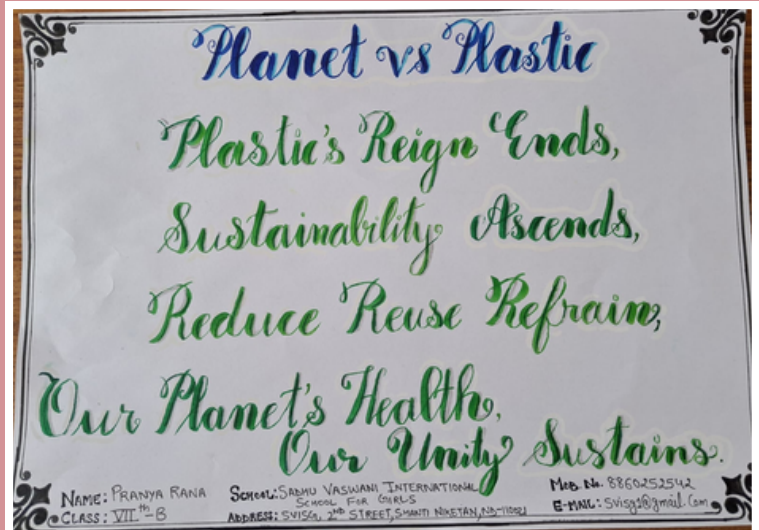 Planet vs Plastic
Plastic's Reign Ends,
Sustainability Ascends,
Reduce Reuse Refrain,
Our Planet's Health,
Our Unity Sustains.
NAME: PRANYA RANA
CLASS: VIIth-B
SCHOOL: SADHU VASWANI INTERNATIONAL
SCHOOL FOR GIRLS
ADDRESS: SVISG, 2ND STREET, SHANTI NIKETAN, ND-110021
MOB No. 8860252542
E-MAIL: Svisg1@gmail.Com